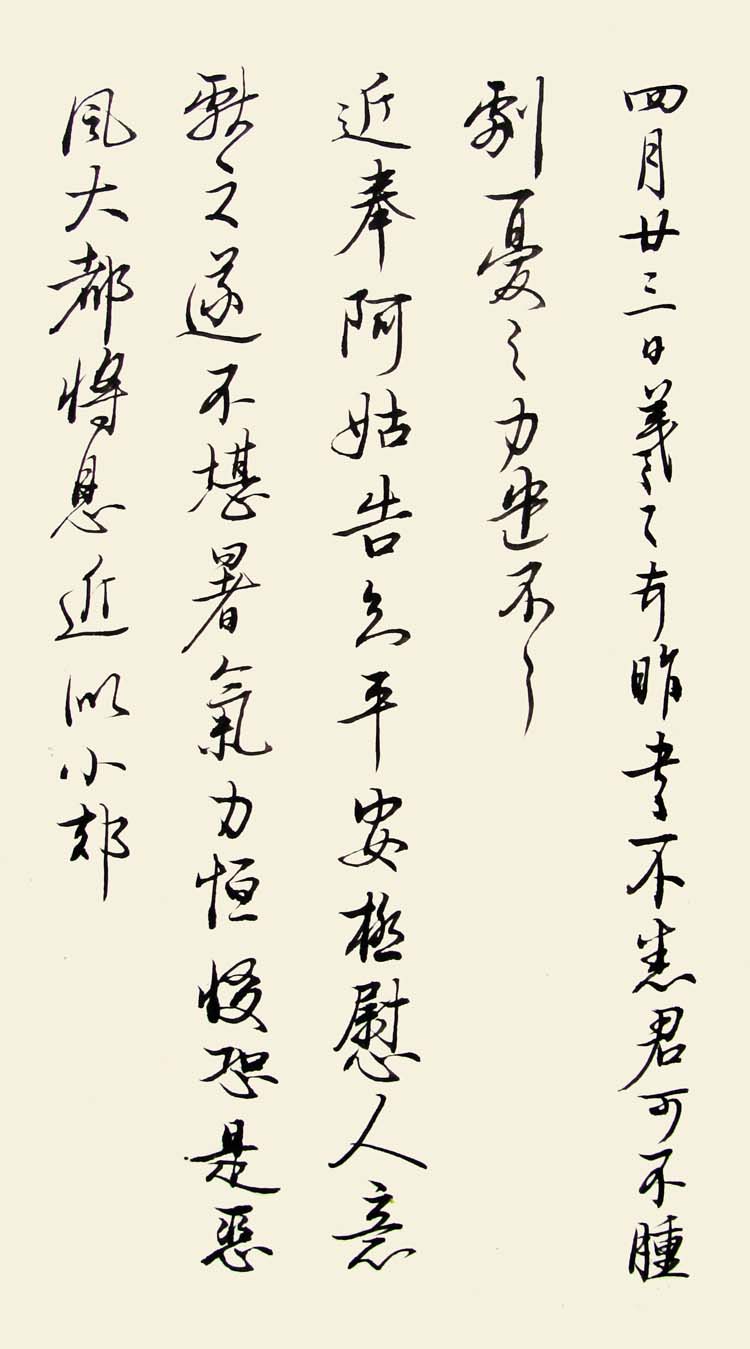 四月廿三日羲之頓首昨書不悉君可不腫
劇憂之力遣不
近奉阿姑告知平安極慰人意
獻之遂不堪暑氣力恒惙恐是惡
風大都將息近似小却